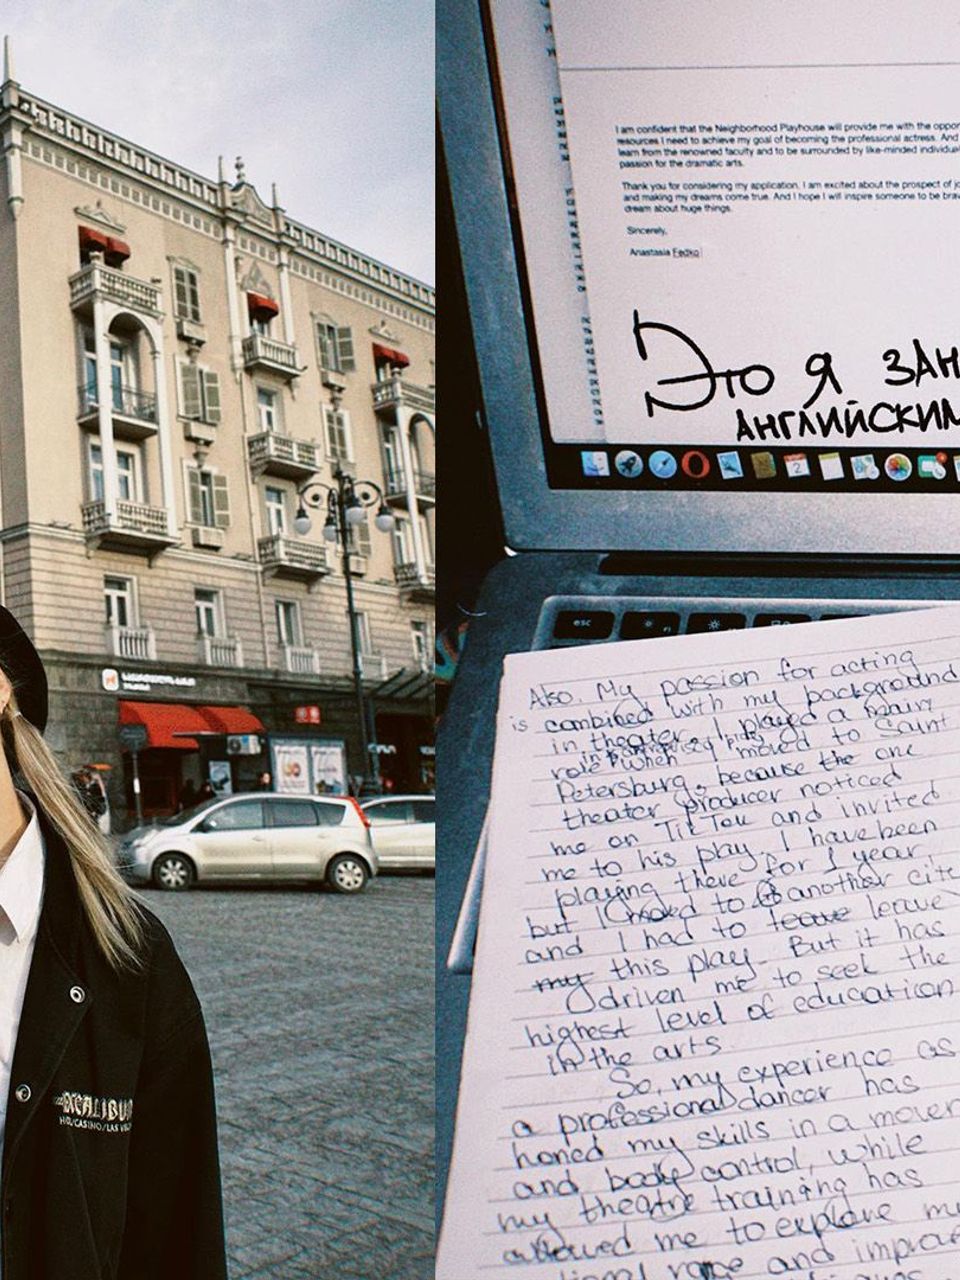 საქართველოს ბანკი
EXCALIBUR
I am confident that the Neighborhood Playhouse will provide me with the oppor
resources I need to achieve my goal of becoming the professional actress. And
learn from the renowned faculty and to be surrounded by like-minded individual
passion for the dramatic arts.
Thank you for considering my application. I am excited about the prospect of jo
and making my dreams come true. And I hope I will inspire someone to be brav
dream about huge things.
Sincerely,
Anastasia Fedko
Это я зан
английским
2
esc
F1
Also. My passion for acting
is combined with my background
in theater. I played a main
role when I moved to Saint
Petersburg, because the one
theater producer noticed
me on TikTok and invited
me to his play. I have been
playing there for 1 year
but I moved to another cit
and I had to leave leave
my this play. But it has
driven me to seek the
highest level of education
in the arts.
So, my experience as
a professional dancer has
honed my skills in a movem
and body control, while
my theatre training has
allowed me to explore my
and improv